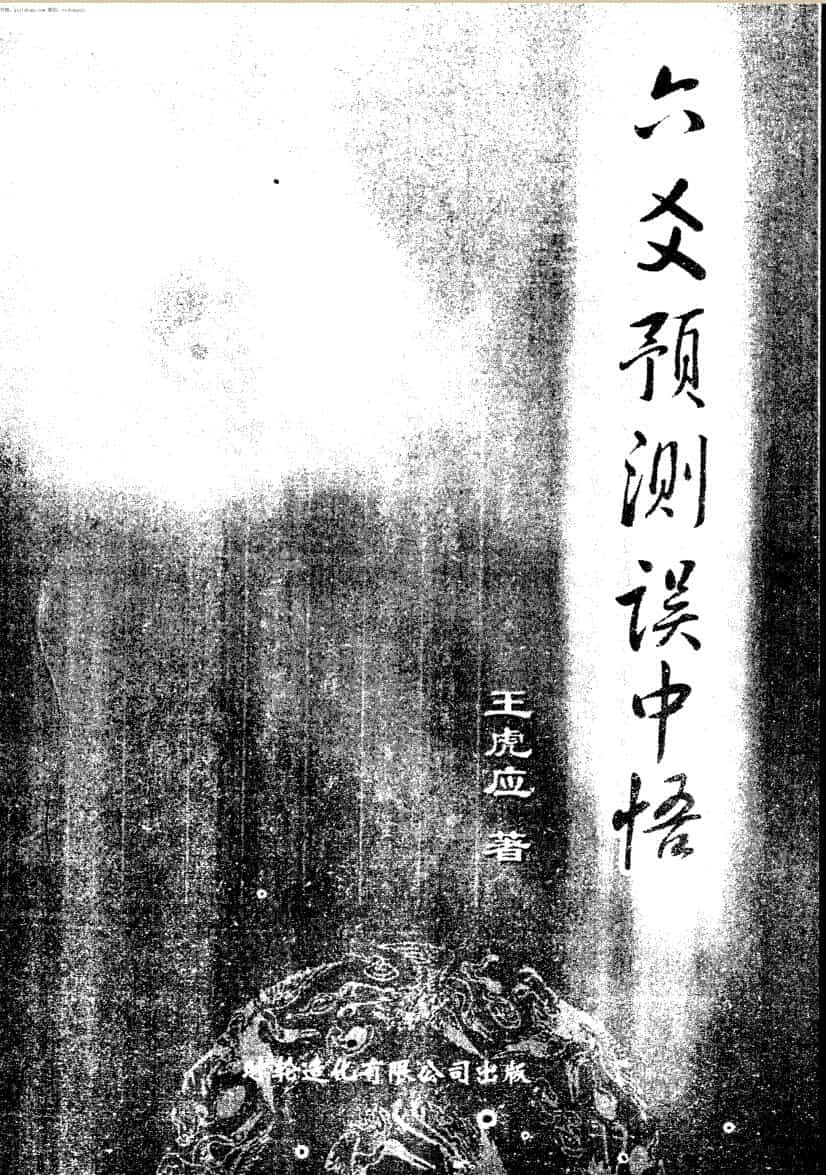 六爻预测误中悟
王虎应 著
轮造化有限公司出版